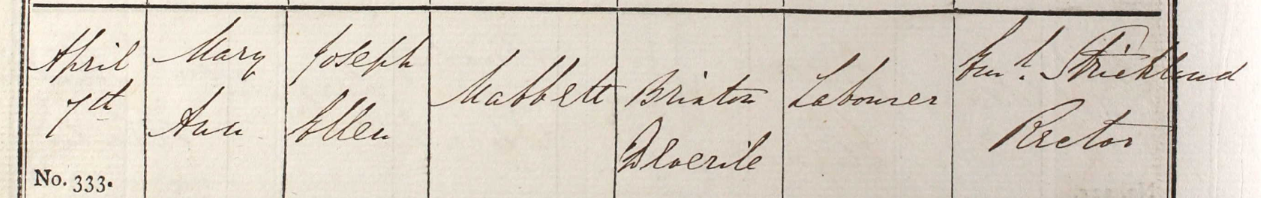 April
7th
No. 333.
Mary
Ann
Joseph
Ellen
Mabbett
Brixton
Deverile
Labourer
Strickland
Rector